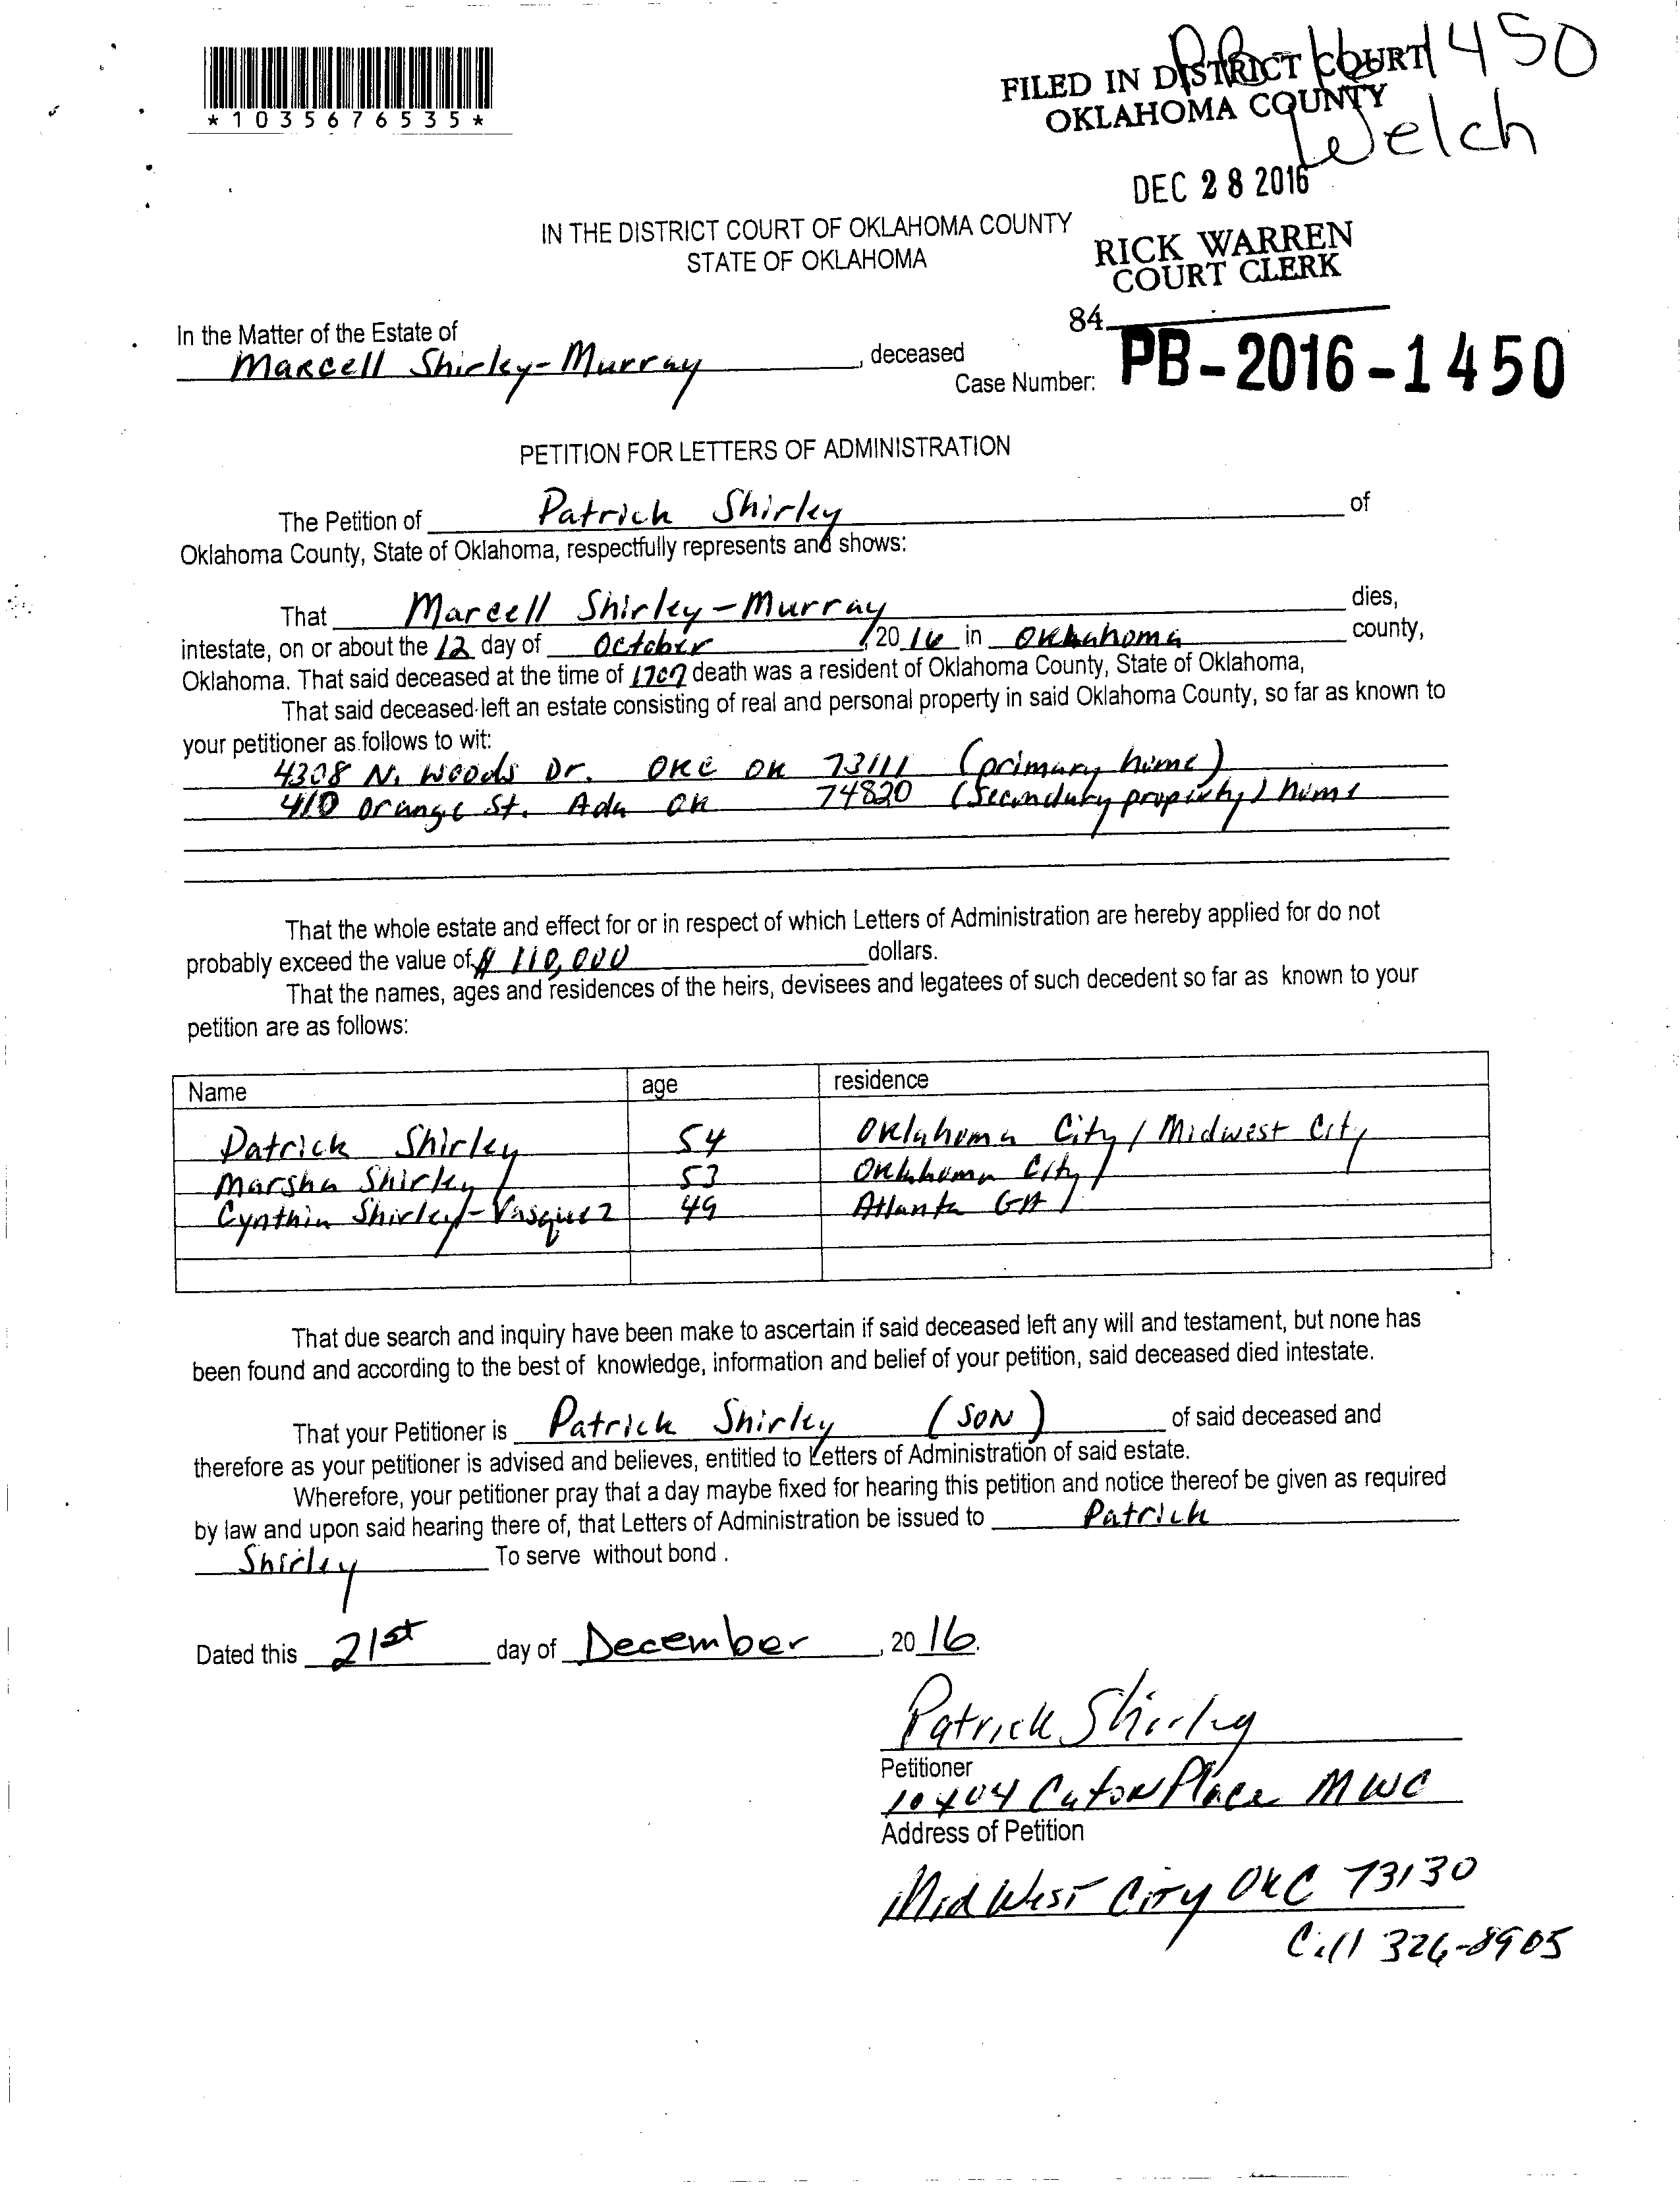 PB-16-1450
FILED IN DISTRICT COURT
OKLAHOMA COUNTY
Welch
*1035676535*
DEC 28 2016
IN THE DISTRICT COURT OF OKLAHOMA COUNTY
STATE OF OKLAHOMA
RICK WARREN
COURT CLERK
84
In the Matter of the Estate of
Marcell Shirley-Murray, deceased
Case Number: PB-2016-1450
PETITION FOR LETTERS OF ADMINISTRATION
The Petition of Patrick Shirley of
Oklahoma County, State of Oklahoma, respectfully represents and shows:
That Marcell Shirley-Murray dies,
intestate, on or about the 12 day of October, 2016 in Oklahoma county,
Oklahoma. That said deceased at the time of 1707 death was a resident of Oklahoma County, State of Oklahoma,
That said deceased left an estate consisting of real and personal property in said Oklahoma County, so far as known to
your petitioner as follows to wit:
4308 N. Woods Dr. OKC OK 73111 (primary home)
410 Orange St. Ada OK 74820 (Secondary property) home
That the whole estate and effect for or in respect of which Letters of Administration are hereby applied for do not
probably exceed the value of $ 110,000 dollars.
That the names, ages and residences of the heirs, devisees and legatees of such decedent so far as known to your
petition are as follows:
Name age residence
Patrick Shirley 54 Oklahoma City / Midwest City
Marsha Shirley 53 Oklahoma City
Cynthia Shirley-Vasquez 49 Atlanta GA
That due search and inquiry have been make to ascertain if said deceased left any will and testament, but none has
been found and according to the best of knowledge, information and belief of your petition, said deceased died intestate.
That your Petitioner is Patrick Shirley (SON) of said deceased and
therefore as your petitioner is advised and believes, entitled to Letters of Administration of said estate.
Wherefore, your petitioner pray that a day maybe fixed for hearing this petition and notice thereof be given as required
by law and upon said hearing there of, that Letters of Administration be issued to Patrick
Shirley To serve without bond .
Dated this 21st day of December, 2016.
Patrick Shirley
Petitioner
10404 Caton Place MWC
Address of Petition
MidWest City OKC 73130
Cell 326-8905